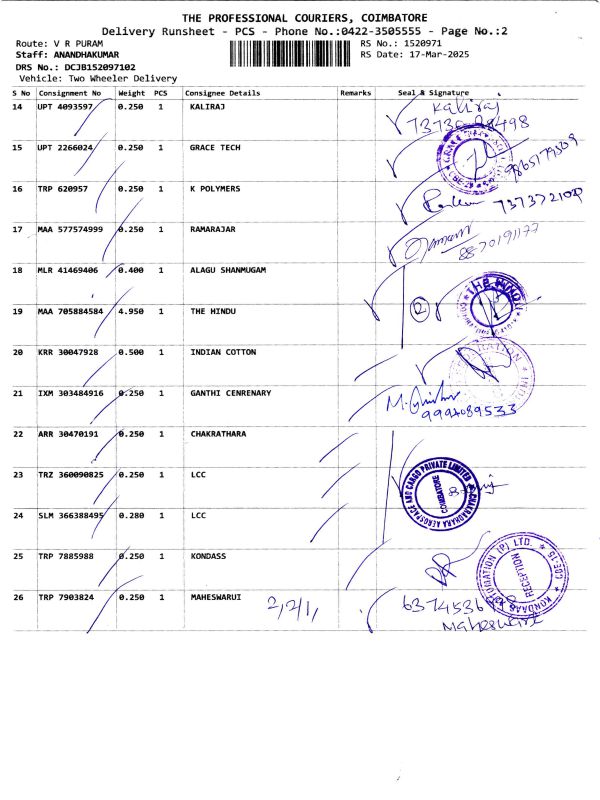 THE PROFESSIONAL COURIERS, COIMBATORE
Delivery Runsheet - PCS - Phone No.:0422-3505555 - Page No.:2
Route: V R PURAM RS No.: 1520971
Staff: ANANDHAKUMAR RS Date: 17-Mar-2025
DRS No.: DCJB152097102
Vehicle: Two Wheeler Delivery
S No Consignment No Weight PCS Consignee Details Remarks Seal & Signature
14 UPT 4093597 0.250 1 KALIRAJ Kaliraj
15 UPT 2266024 0.250 1 GRACE TECH 9865179509
16 TRP 620957 0.250 1 K POLYMERS
17 MAA 577574999 0.250 1 RAMARAJAR
18 MLR 41469406 0.400 1 ALAGU SHANMUGAM
19 MAA 705884584 4.950 1 THE HINDU 2 THE HINDU
20 KRR 30047928 0.500 1 INDIAN COTTON
21 IXM 303484916 0.250 1 GANTHI CENRENARY
9994089533
22 ARR 30470191 0.250 1 CHAKRATHARA
23 TRZ 360090825 0.250 1 LCC CHAKRADHARA AEROSPACE AND CARGO PRIVATE LIMITED COIMBATORE
24 SLM 366388495 0.280 1 LCC
25 TRP 7885988 0.250 1 KONDASS (P) LTD. RECEPTION
26 TRP 7903824 0.250 1 MAHESWARUI 2,2/1,